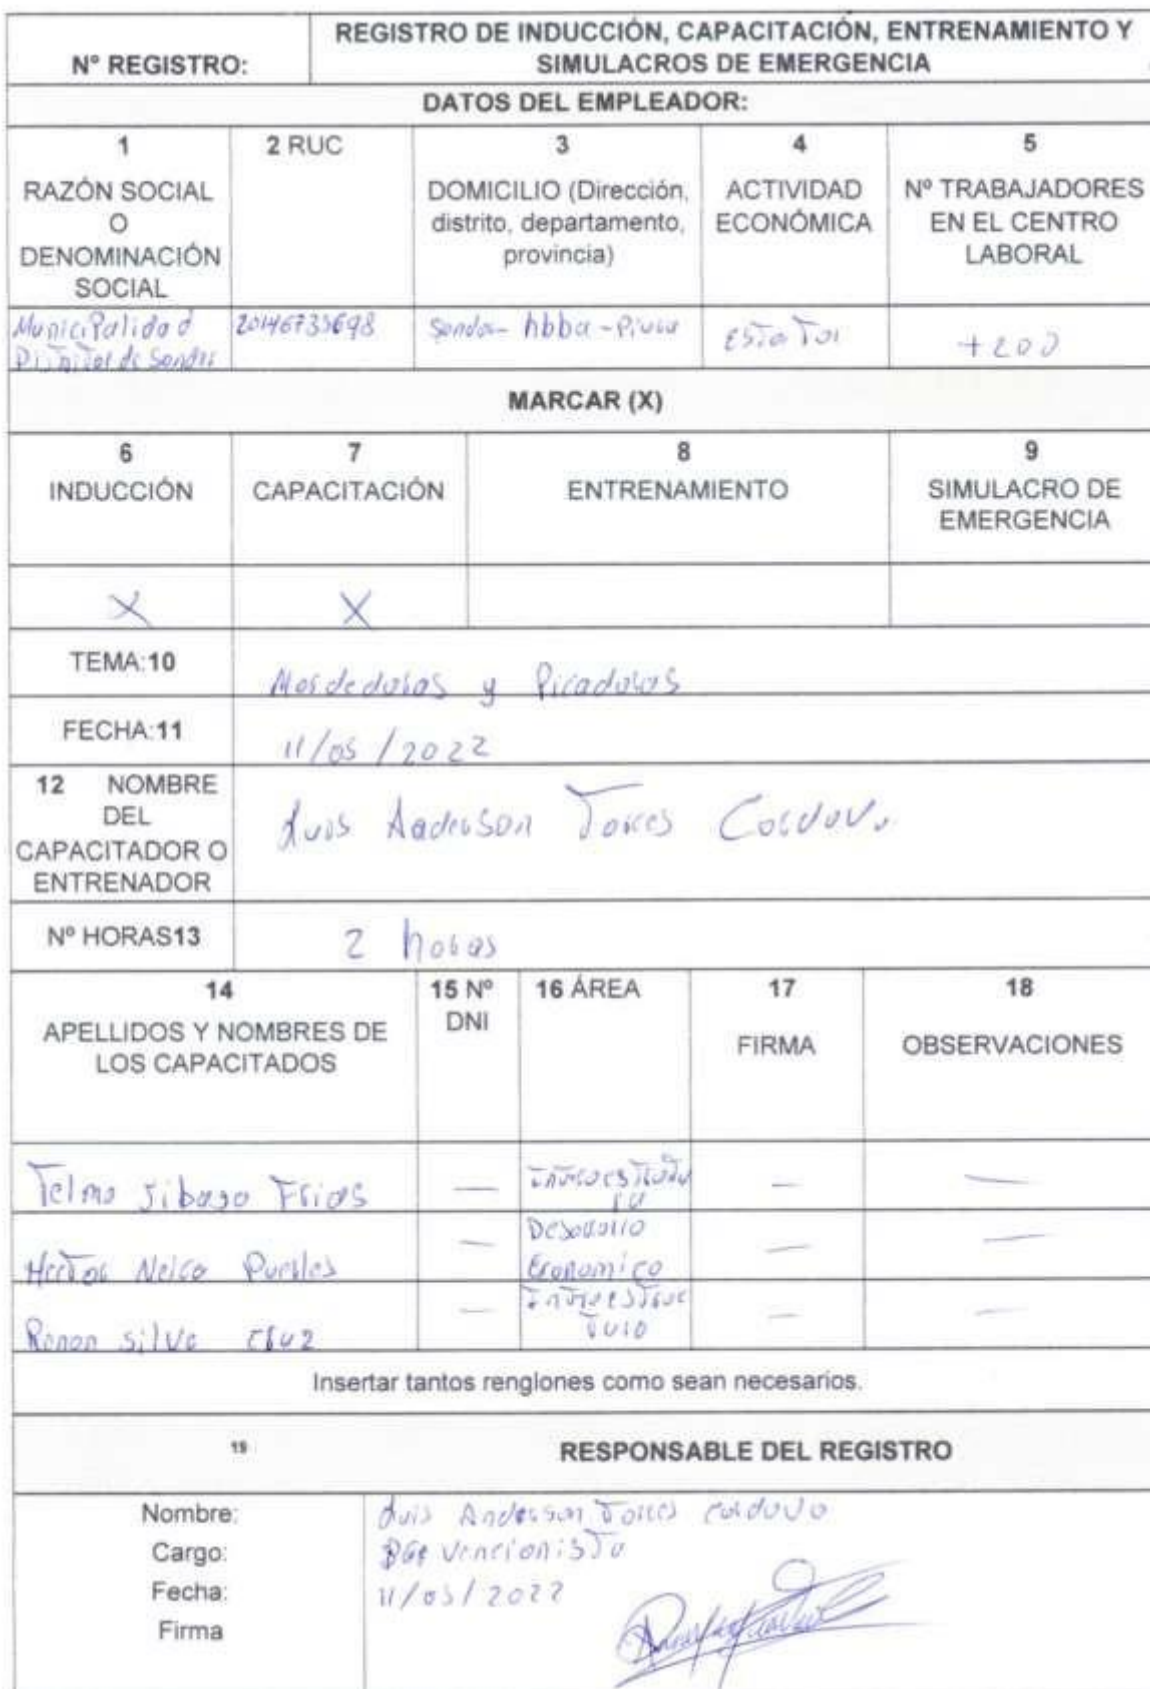 Nº REGISTRO:
REGISTRO DE INDUCCIÓN, CAPACITACIÓN, ENTRENAMIENTO Y
SIMULACROS DE EMERGENCIA
DATOS DEL EMPLEADOR:
1
RAZÓN SOCIAL
O
DENOMINACIÓN
SOCIAL
2 RUC
3
DOMICILIO (Dirección,
distrito, departamento,
provincia)
4
ACTIVIDAD
ECONÓMICA
5
Nº TRABAJADORES
EN EL CENTRO
LABORAL
Municipalidad
Distrital de Sondor
Sondor - hbba - Piura
Estatal
+200
MARCAR (X)
6
INDUCCIÓN
7
CAPACITACIÓN
8
ENTRENAMIENTO
9
SIMULACRO DE
EMERGENCIA
X
X
TEMA:10
Mordeduras y Picaduras
FECHA:11
11/05/2022
12 NOMBRE
DEL
CAPACITADOR O
ENTRENADOR
Luis Anderson Torres Cordova
Nº HORAS13
2 horas
14
APELLIDOS Y NOMBRES DE
LOS CAPACITADOS
15 Nº
DNI
16 ÁREA
17
FIRMA
18
OBSERVACIONES
Telmo Jibaja Frias
—
Infraestructu
ra
—
—
Hector Neira
—
Desarrollo
Economico
—
—
Renan Silva Cruz
—
Infraestruc
tura
—
—
Insertar tantos renglones como sean necesarios.
19
RESPONSABLE DEL REGISTRO
Nombre:
Luis Anderson Torres Cordova
Cargo:
Prevencionista
Fecha:
11/05/2022
Firma